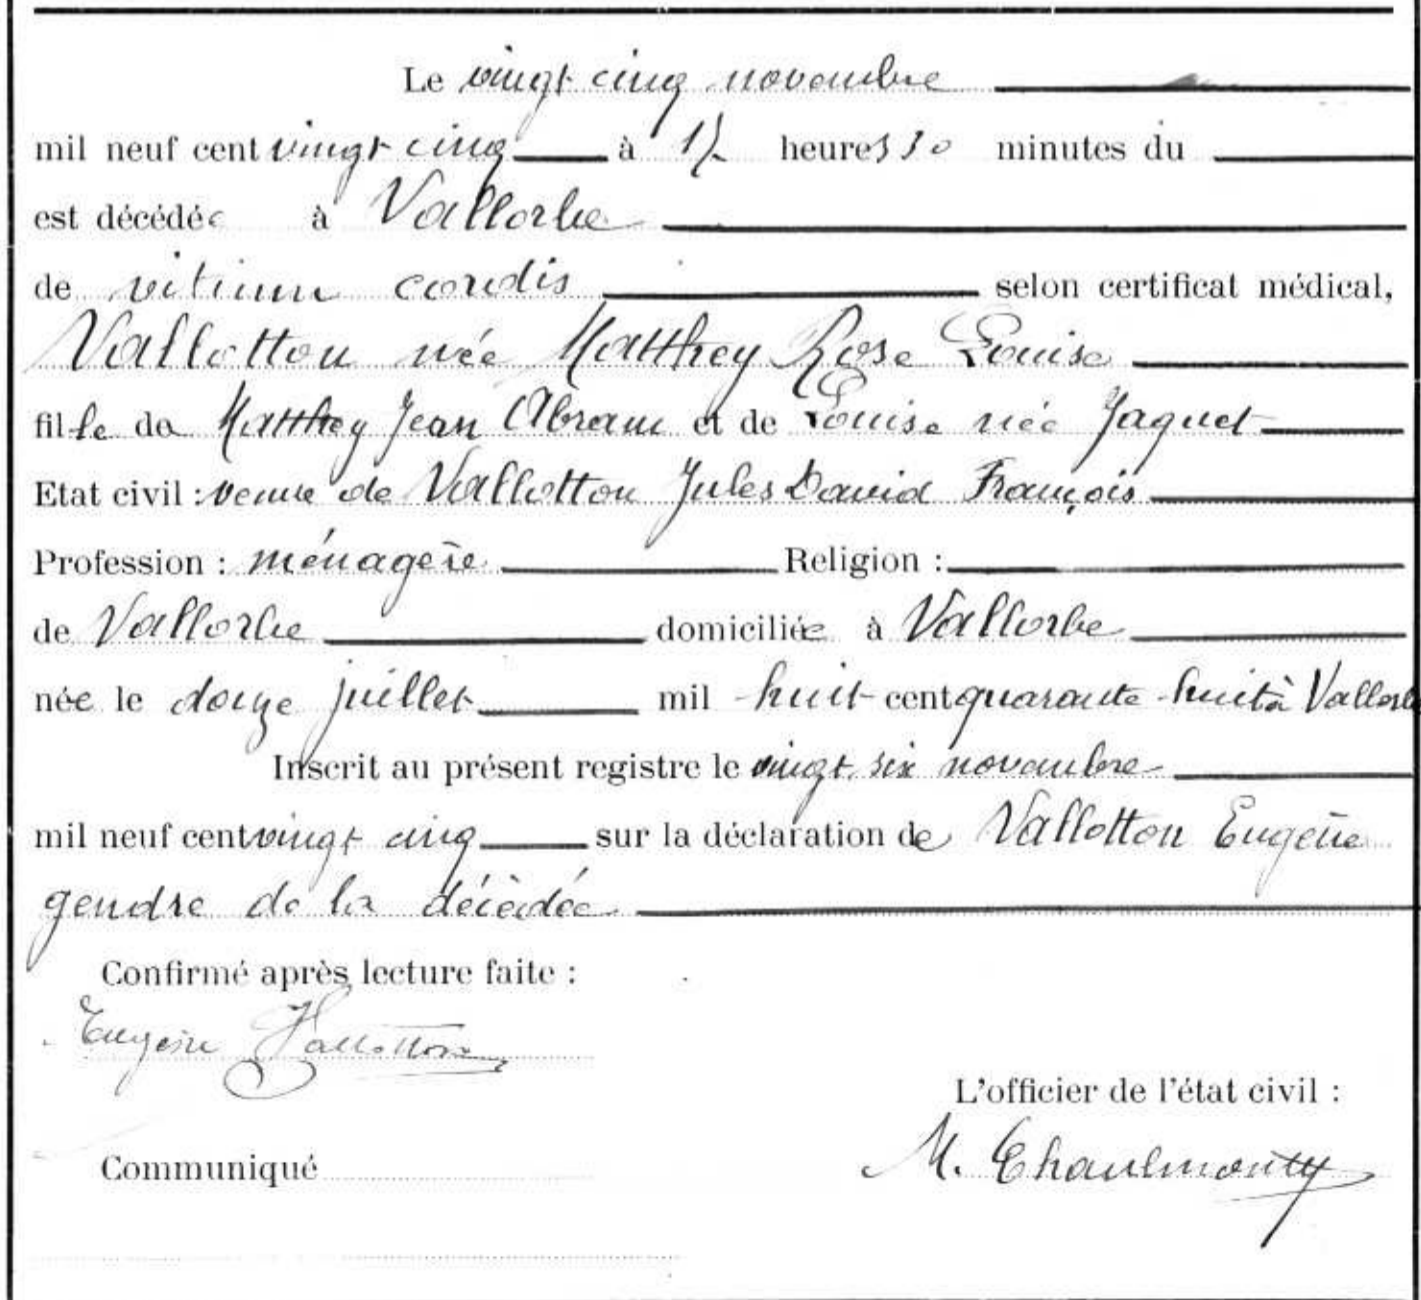 Le vingt cinq novembre
mil neuf cent vingt cinq à 15 heures 30 minutes du
est décédée à Vallorbe
de vitium cordis selon certificat médical,
Vallotton née Matthey Rose Louise
fille de Matthey Jean Abram et de Louise née Jaquet
Etat civil : veuve de Vallotton Jules David François
Profession : ménagère Religion :
de Vallorbe domiciliée à Vallorbe
née le douze juillet mil huit cent quarante huit à Vallorbe
Inscrit au présent registre le vingt six novembre
mil neuf cent vingt cinq sur la déclaration de Vallotton Eugène
gendre de la décédée
Confirmé après lecture faite :
Eugène Vallotton
L'officier de l'état civil :
M.
Communiqué